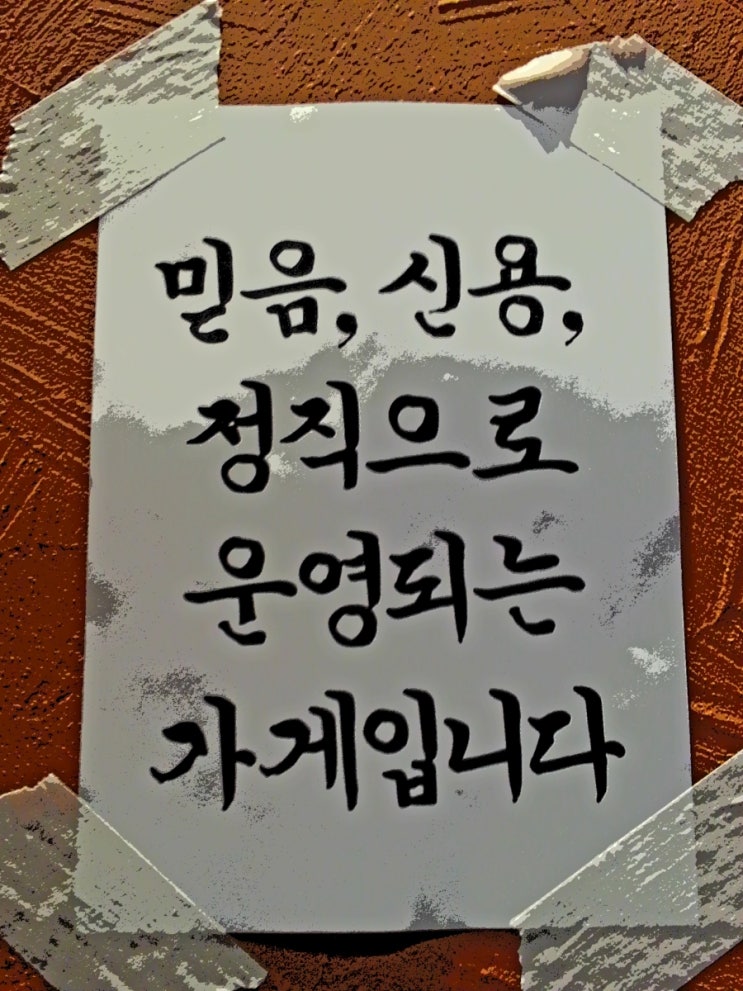 믿음, 신용,
정직으로
운영되는
가게입니다